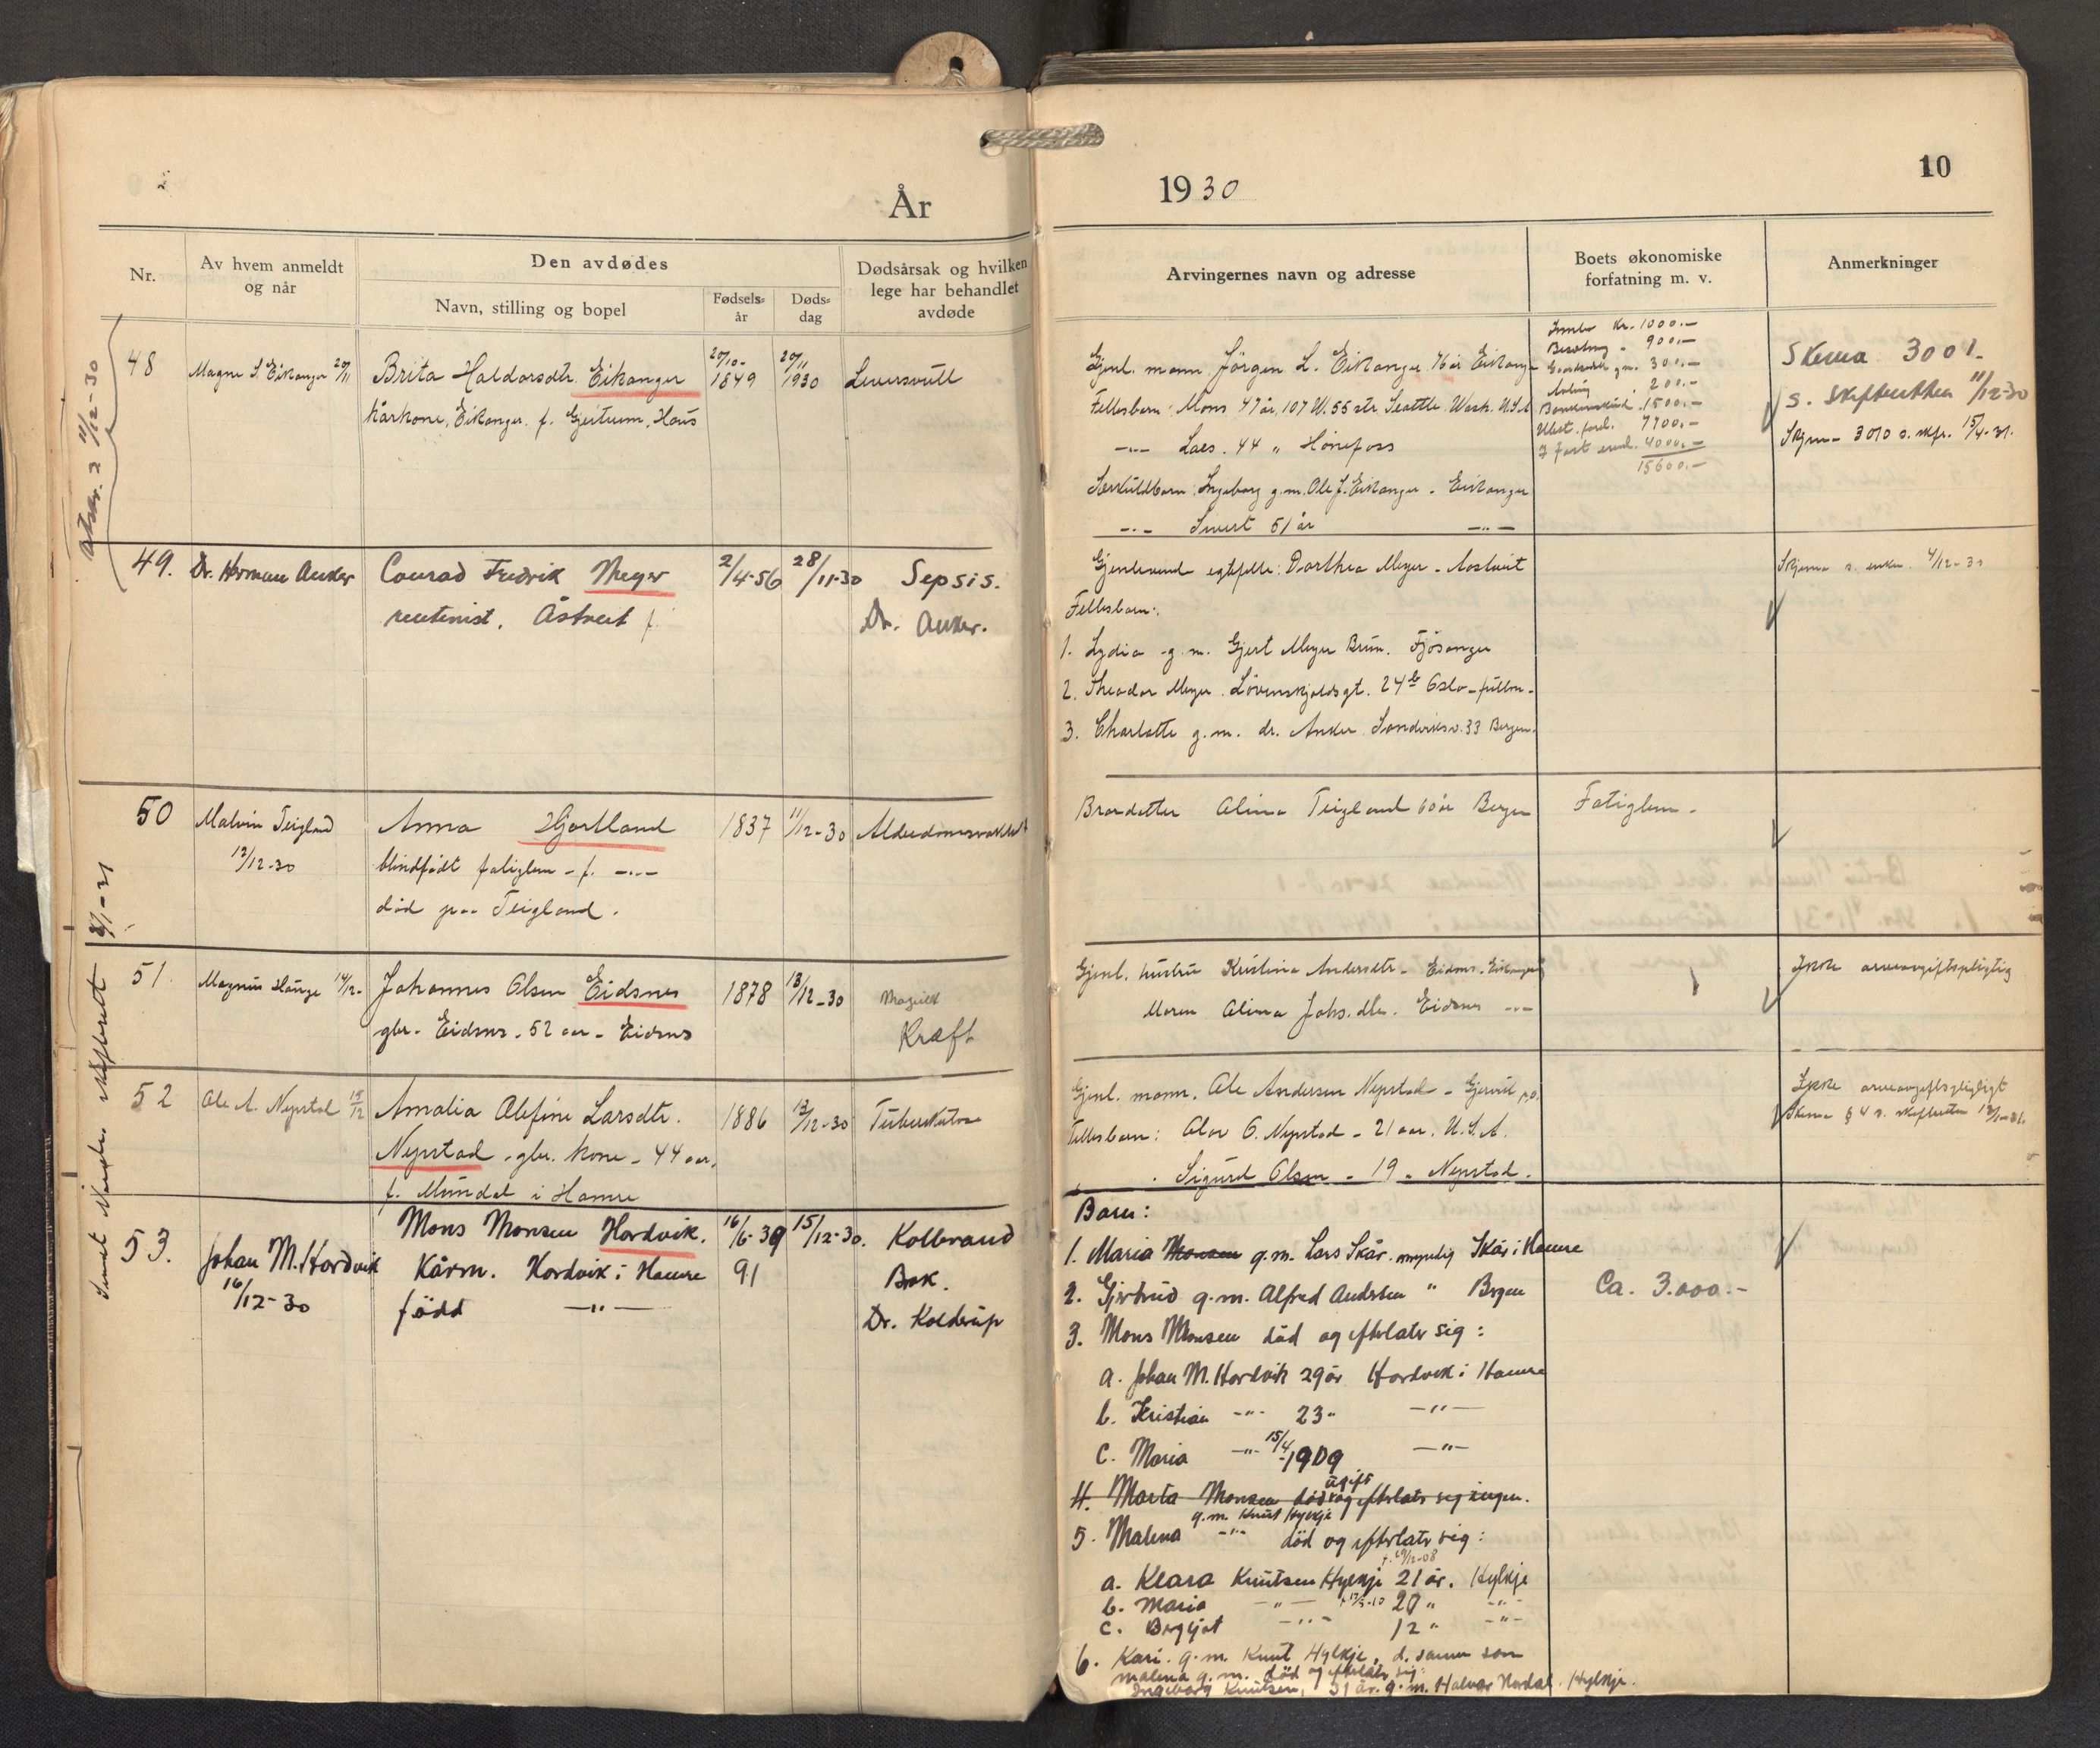 År
1930
10
Nr.
Av hvem anmeldt
og når
Den avdødes
Navn, stilling og bopel
Fødsels-
år
Døds-
dag
Dødsårsak og hvilken
lege har behandlet
avdøde
Arvingernes navn og adresse
Boets økonomiske
forfatning m. v.
Anmerkninger
Utskr. 2 11/12-30
48
Magne S. Eikanger 20/11
Brita Haldorsdtr. Eikanger
kårkone, Eikanger. f. Haus
20/10-
1849
20/11
1930
Gjenl. mann Jörgen L. Eikanger 76 år Eikanger
Fellesbarn: Mons 47 år, 107 W. 55 str. Seattle Wash. U.S.A
-"- Lars. 44 " Hönefoss
Særkuldbarn: Ingeborg g.m. Ole J. Eikanger - Eikanger
-"- Sivert 51 år -"-
Innbo kr. 1000.-
Besetning - 900.-
300.-
Avling 200.-
1500.-
7700.-
4000.-
15600.-
Skema 3001-
s. Skifteretten 11/12-30
Skjema 3010 s. skfr. 15/4-31.
49.
Dr. Herman Anker
Conrad Fredrik Meyer
rentenist. Åstveit f.
2/4-56
28/11-30
Sepsis.
Dr. Anker.
Gjenlevend egtefelle: Dorthea Meyer - Aastveit
Fellesbarn:
1. Lydia g.m. Gjert Meyer Brun. Fjösanger
2. Theodor Meyer. Lövenskjoldsgt. 24 b Oslo
3. Charlotte g.m. dr. Anker Sandviksv. 33 Bergen.
Skjema s. enken 4/12-30
50
Malvin Teigland
12/12-30
Anna Hjortland
blindfödt fatiglem - f. -"-
död paa Teigland.
1837
11/12-30
Alderdomssvakhet
Brordatter Alina Teigland 60 år Bergen
Fatiglem.
51
Magnus Hauge 14/12-
Johannes Olsen Eidsnes
gbr. Eidsnes - 52 aar - Eidsnes
1878
13/12-30
Kræft
Gjenl. hustru Kristina Andersdtr. Eidsnes - Eikanger
Moren Alina Johs.dtr. Eidsnes -"-
Ikke arveavgiftspligtig
52
Ole A. Nepstad 15/12
Amalia Olefine Larsdtr.
Nepstad - gbr. kone - 44 aar,
f. Mundal i Hamre
1886
12/12-30
Tuberkulose
Gjenl. mann. Ole Andersen Nepstad - Gjervik p.o.
Fellesbarn: Olav O. Nepstad - 21 aar. U.S.A.
Sigurd Olsen - 19 - Nepstad.
Ikke arveavgiftspligtigt
Skema § 4 s. skifteretten 13/1-31.
53.
Johan M. Hordvik
16/12-30
Mons Monsen Hordvik.
Kårm. Hordvik i Hamre
född -"-
16/6-39
91
15/12-30.
Kolbrand
Bak.
Dr. Kolderup
Barn:
1. Maria Monsen g.m. Lars Skår. myndig Skår i Hamre
2. Gjertrud g.m. Alfred Andersen " Bergen
3. Mons Monsen död og efterlatr sig:
a. Johan M. Hordvik 29 år Hordvik i Hamre
b. Kristian -"- 23 " -"-
c. Maria -"- 15/4-1909 -"-
4. Marta Monsen död ugift og efterlatr sig ingen.
g.m. Knut Hylkje
5. Malena -"- död og efterlatr sig:
a. Klara Knutsen Hylkje 21 år. Hylkje
b. Maria -"- 20 " -"-
c. Bergljot -"- 12 " -"-
6. Kari. g.m. Knut Hylkje, d. samme som
Malena g.m. död og efterlatr sig:
Ingeborg Knutsen, 31 år. g.m. Halvor Nordal. Hylkje.
Ca. 3.000.-